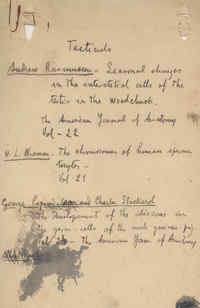 Testicles
Andrew Rasmussen - Seasonal changes
in the interstitial cells of the
testis in the Woodchuck.
The American Journal of Anatomy
Vol - 22
H. L. Wieman - The chromosomes of human sperma
tocytes -
Vol 21
George Papanicolaou and Charles Stockard
The Development of the idiosome in
the germ-cells of the male guinea pig
The American Journ of Anatomy